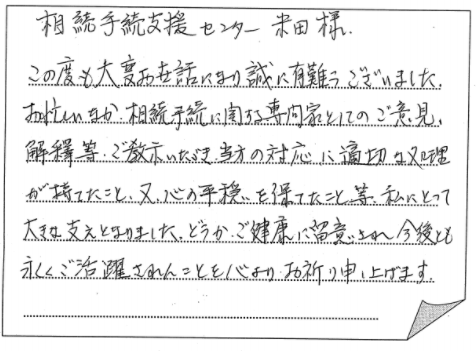 相続手続支援センター 米田様.
この度も大変お世話になり誠に有難うございました.
お忙しいなか. 相続手続に関する専門家としてのご意見、
解釋等. ご教示いただき, 当方の対応に適切な処理
が持てたこと、又、心の平穏を保てたこと等. 私にとって
大きな支えとなりました. どうか. ご健康に留意され 今後とも
永くご活躍されんことを心より お祈り申し上げます.